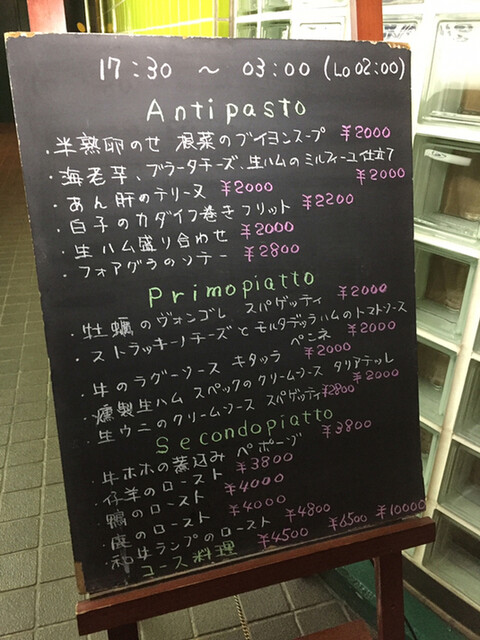 17:30 〜 03:00 (Lo 02:00)
Antipasto
・半熟卵のせ 根菜のブイヨンスープ ¥2000
・海老芋、ブラータチーズ、生ハムのミルフィーユ仕立て ¥2000
・あん肝のテリーヌ ¥2000
・白子のカダイフ巻きフリット ¥2200
・生ハム盛り合わせ ¥2000
・フォアグラのソテー ¥2800
Primopiatto
・牡蠣のヴォンゴレ スパゲッティ ¥2000
・ストラッキーノチーズとモルタデッラハムのトマトソース ペンネ ¥2000
・牛のラグーソース キタッラ ¥2000
・燻製生ハム スペックのクリームソース タリアテッレ ¥2000
・生ウニのクリームソース スパゲッティ ¥2800
Secondopiatto
・牛ホホの煮込み ペポーゾ ¥3800
・仔羊のロースト ¥3800
・鴨のロースト ¥4000
のロースト ¥4000
和牛ランプのロースト ¥4800
コース料理 ¥4500 ¥6500 ¥10000